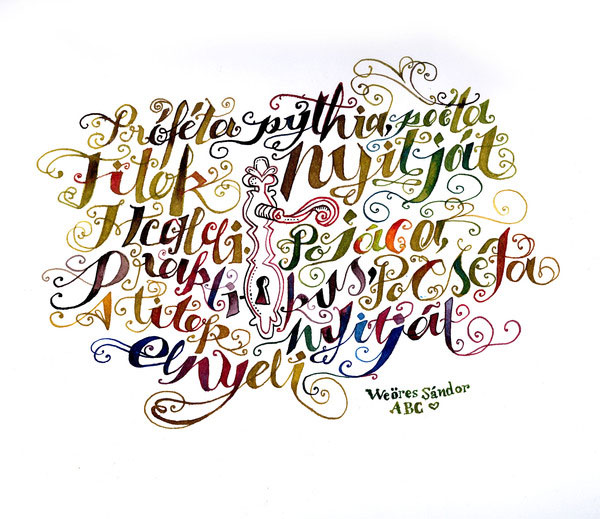 Próféta pythia, poéta
Titok nyitját
Megleli. Pojáca,
Praktikus, Pocséta
A titok nyitját
elnyeli
Weöres Sándor
ABC